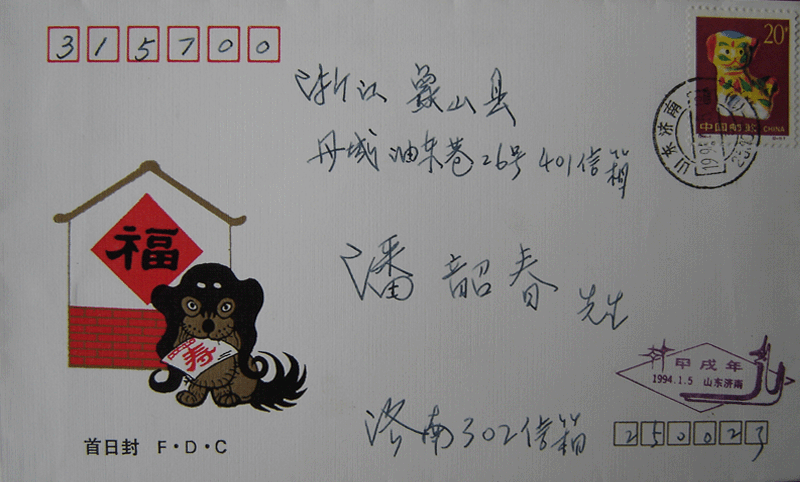 315700
20分
中国邮政 CHINA
山东济南
浙江 象山县
丹城 油车巷26号 401信箱
潘韶春 先生
福
寿
甲戌年
1994.1.5 山东济南
济南302信箱
250023
首日封 F·D·C